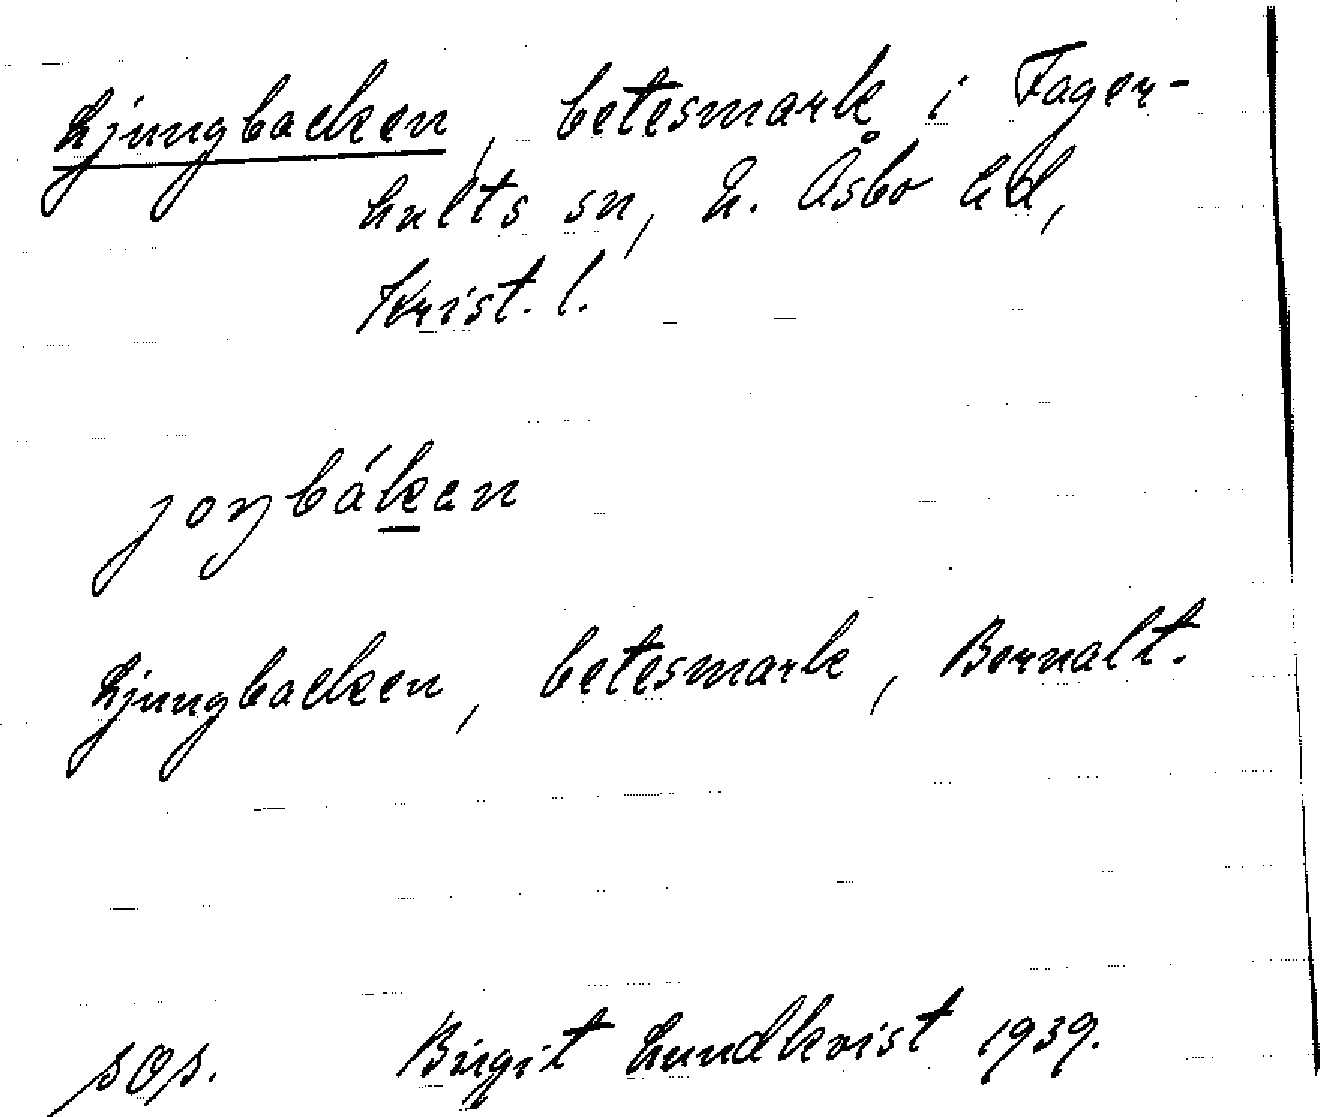 Ljungbacken, betesmark i Fager-
hults sn, N. Åsbo hd,
Krist. l.
joŋbákan
Ljungbacken, betesmark, Bornalt.
sOs. Birgit Lundkvist 1939.